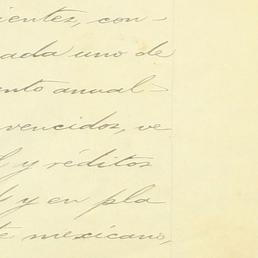 ientes, con-
ada uno de
ento anual-
vencidos, ve
l y réditos
y en pla
te mexicano,